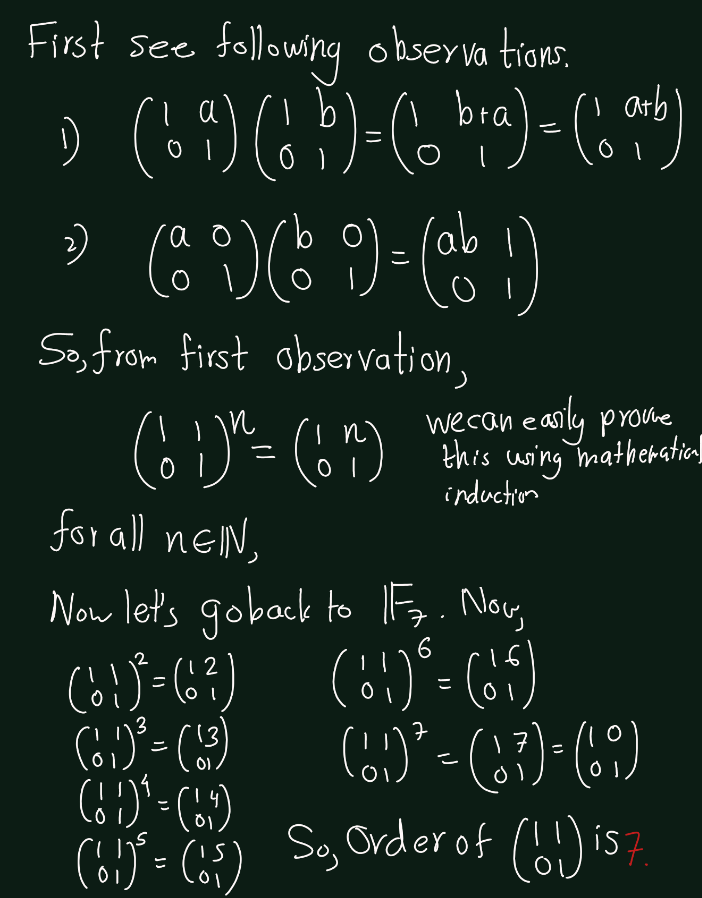 First see following observations.
1) (1 a; 0 1)(1 b; 0 1) = (1 b+a; 0 1) = (1 a+b; 0 1)
2) (a 0; 0 1)(b 0; 0 1) = (ab 1; 0 1)
So, from first observation,
(1 1; 0 1)^n = (1 n; 0 1) we can easily prove
this using mathematical
induction
for all n∈ℕ,
Now let's go back to 𝔽_7. Now,
(1 1; 0 1)^2 = (1 2; 0 1)
(1 1; 0 1)^3 = (1 3; 0 1)
(1 1; 0 1)^4 = (1 4; 0 1)
(1 1; 0 1)^5 = (1 5; 0 1)
(1 1; 0 1)^6 = (1 6; 0 1)
(1 1; 0 1)^7 = (1 7; 0 1) = (1 0; 0 1)
So, Order of (1 1; 0 1) is 7.